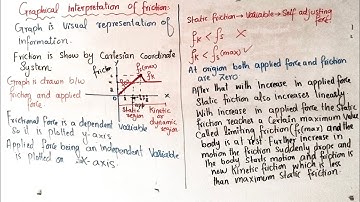 Graphical Interpretation of friction:
Graph is visual representation of
Information.
Friction is show by Cartesian Coordinate
System
Graph is drawn b/w
friction and applied
force
Frictional force is a dependent variable
so it is plotted y-axis
Applied force being an independent Variable
is plotted on x-axis.
friction
fs(max)
fk
Static region
Kinetic or dynamic region
Static friction → Variable → Self adjusting
force
fk < fs ✗
fk < fs(max) ✓
At origin both applied force and friction
are Zero
After that with Increase in applied force
Static friction also increases linearly
With Increase in applied force the Static
friction reaches a Certain maximum Value
Called limiting friction (fs(max) and the
body is at rest Further increase in
motion the friction Suddenly drops and
the body starts motion and friction is
now Kinetic friction which is less
than maximum Static friction.